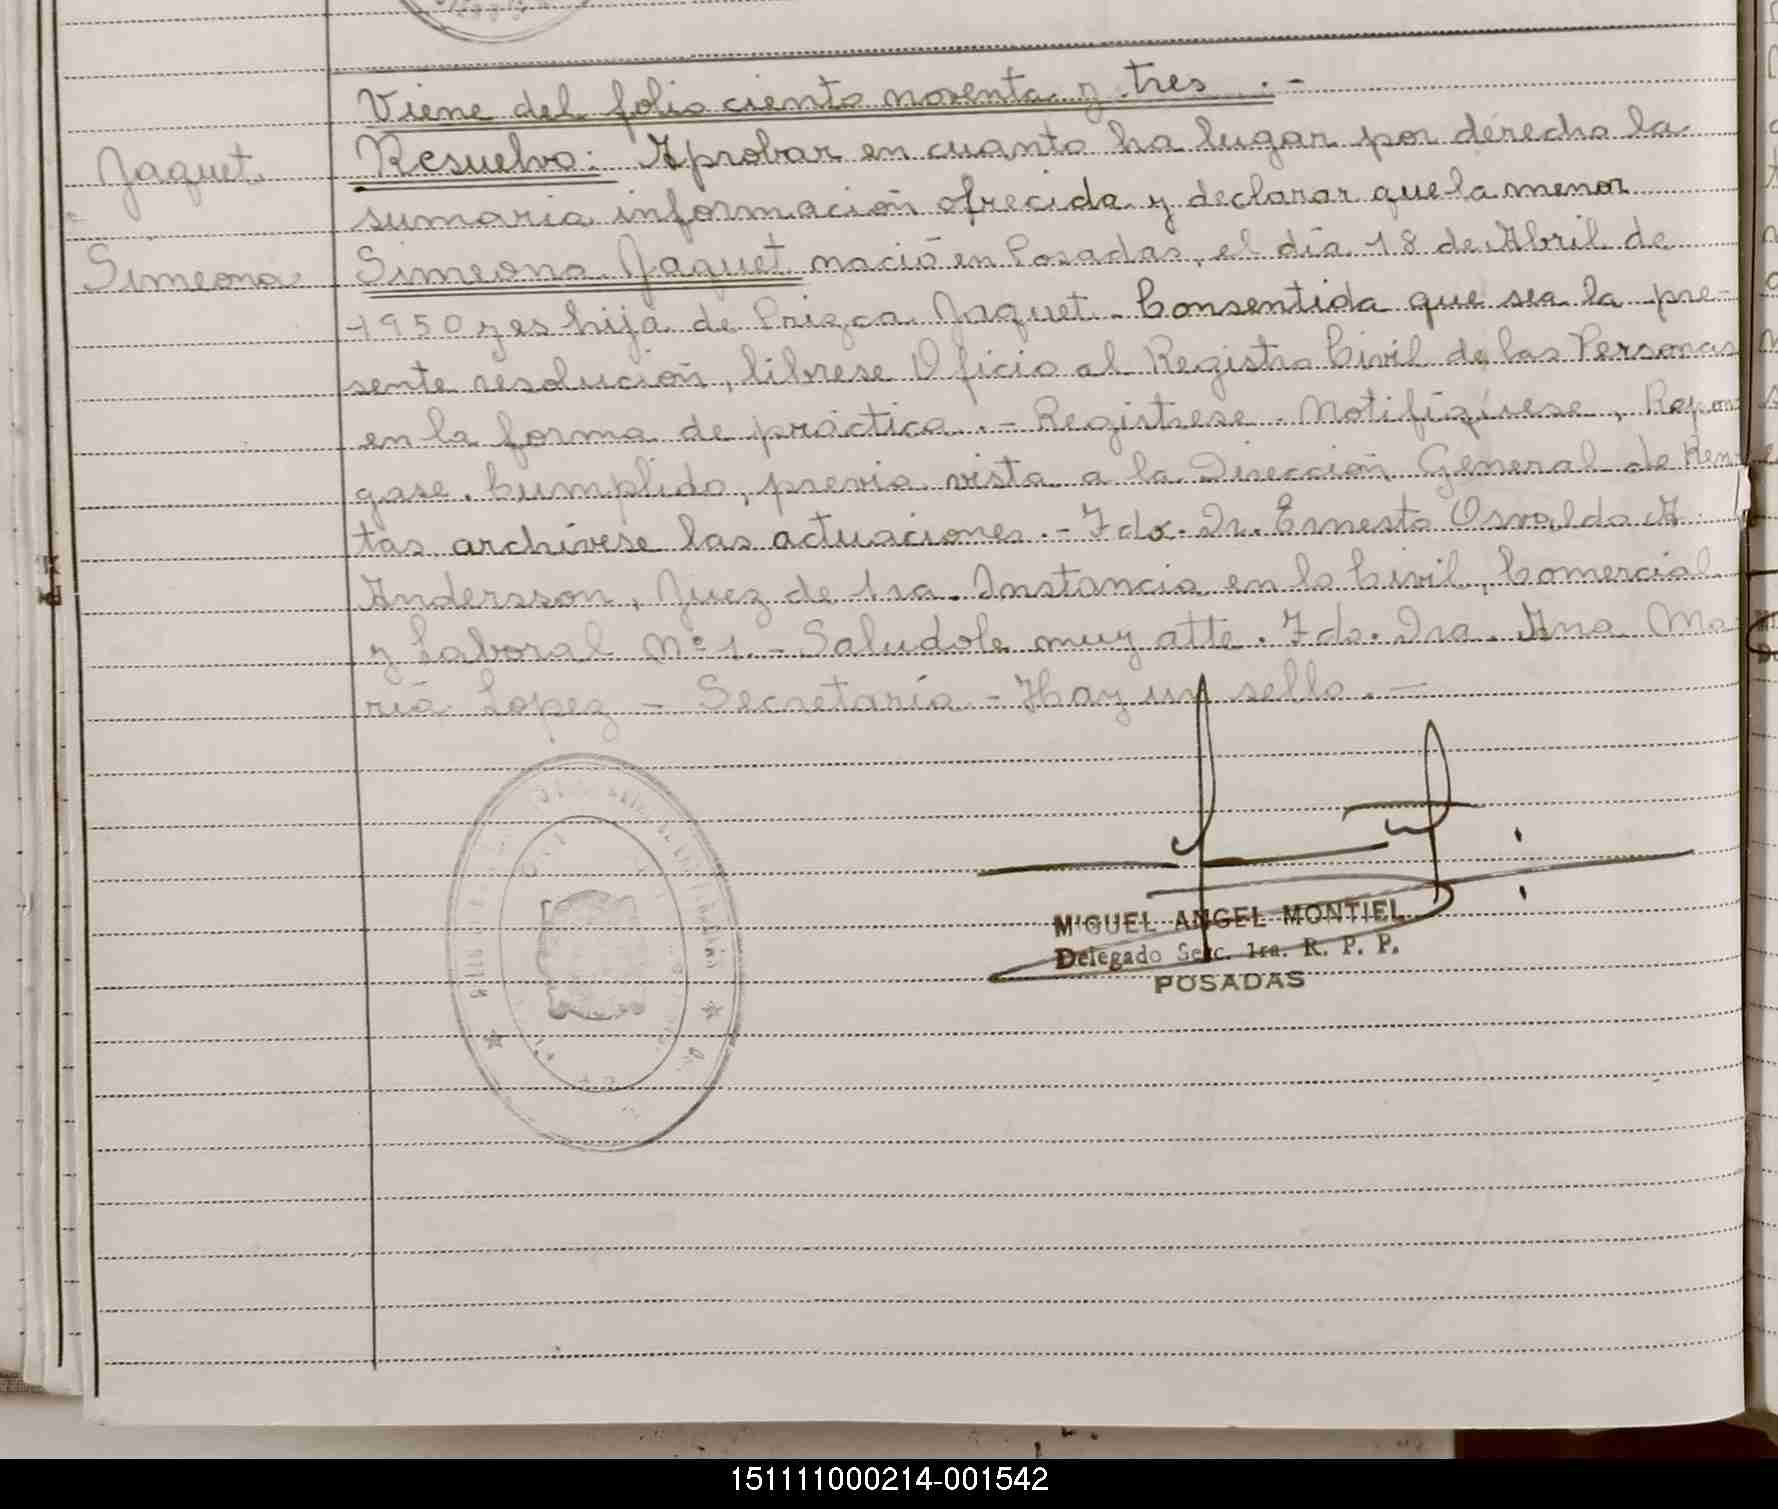 Viene del folio ciento noventa y tres . -
Jaquet
Resuelvo: Aprobar en cuanto ha lugar por derecho la
sumaria información ofrecida y declarar que la menor
Simeona
Simeona Jaquet nació en Posadas, el día 18 de Abril de
1950 y es hija de Prizca Jaquet. Consentida que sea la pre-
sente resolución, librese Oficio al Registro Civil de las Personas
en la forma de práctica. - Registrese. Notifiquese, Repón
gase. Cumplido, previa vista a la Dirección General de Ren
tas archívese las actuaciones. - Fdo. Dr. Ernesto Osvaldo A
Andersson, Juez de 1ra. Instancia en lo Civil, Comercial
y Laboral Nº 1. - Saludole muy atte. Fdo. Dra. Ana Ma
ría Lopez - Secretaría - Hay un sello. -
MIGUEL ANGEL MONTIEL
Delegado Secc. 1ra. R. P. P.
POSADAS
151111000214-001542